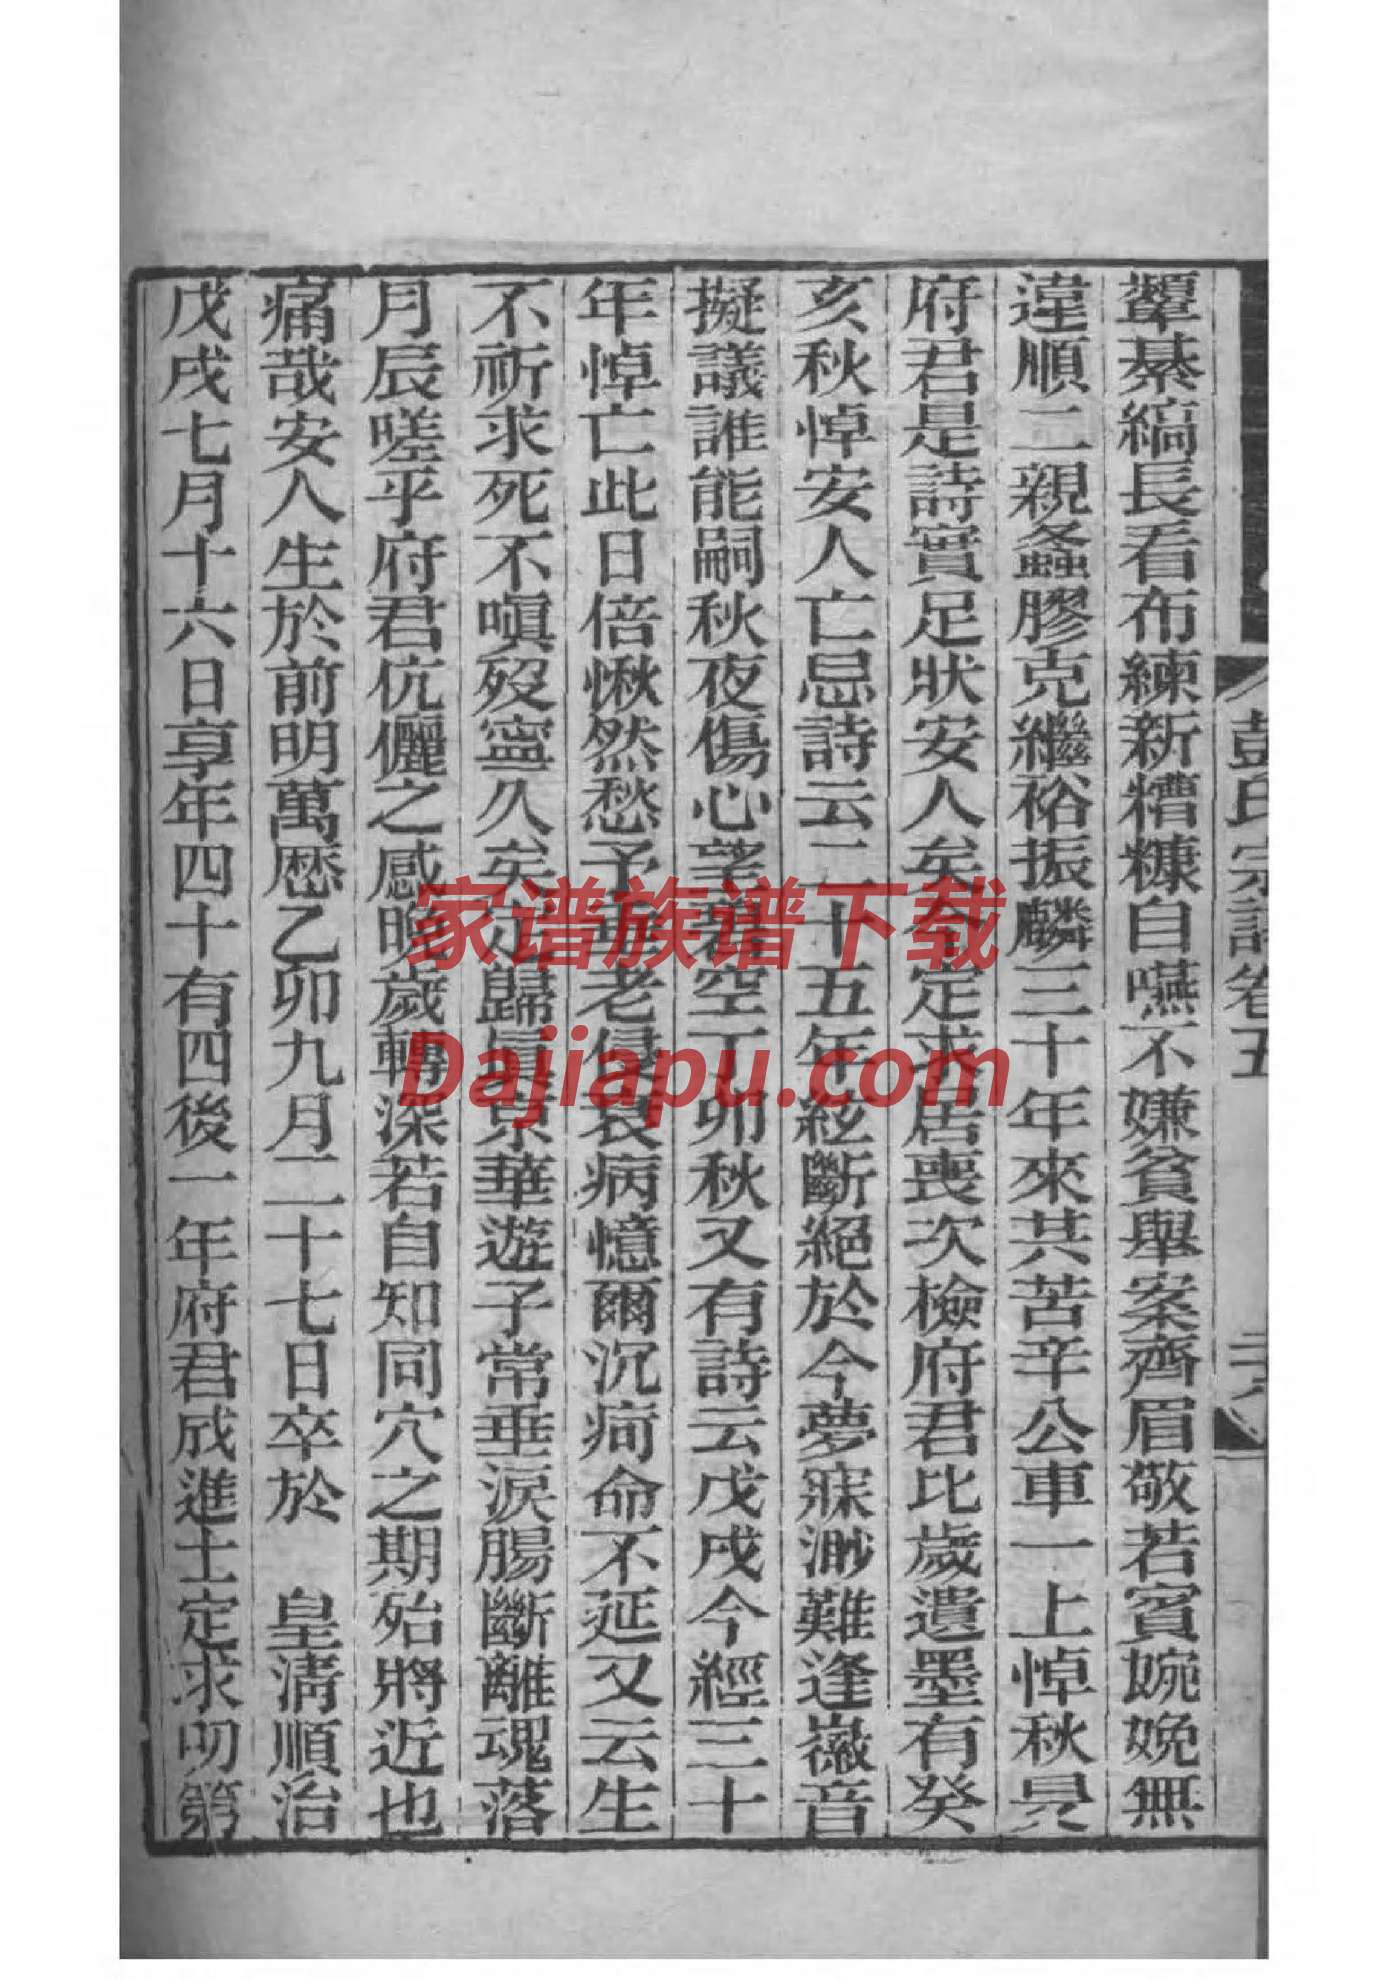 彭氏宗譜卷五
二六
顰綦縞長看布練新糟糠自嚥不嫌貧舉案齊眉敬若賓婉娩無
違順二親螽膠克繼裕振麟三十年來共苦辛公車一上悼秋旻
府君是詩實足狀安人矣今定求居喪次檢府君比歲遺墨有癸
亥秋悼安人亡忌詩云二十五年絃斷絕於今夢寐渺難逢徽音
擬議誰能嗣秋夜傷心望碧空丁卯秋又有詩云戊戌今經三十
年悼亡此日倍愀然愁予耄老侵衰病憶爾沉痾命不延又云生
不祈求死不嗔歿寧久矣亦歸眞京華遊子常垂淚腸斷離魂落
月辰嗟乎府君伉儷之感晚歲轉深若自知同穴之期殆將近也
痛哉安人生於前明萬厯乙卯九月二十七日卒於 皇淸順治
戊戌七月十六日享年四十有四後一年府君成進士定求叨第
家谱族谱下载
Dajiapu.com